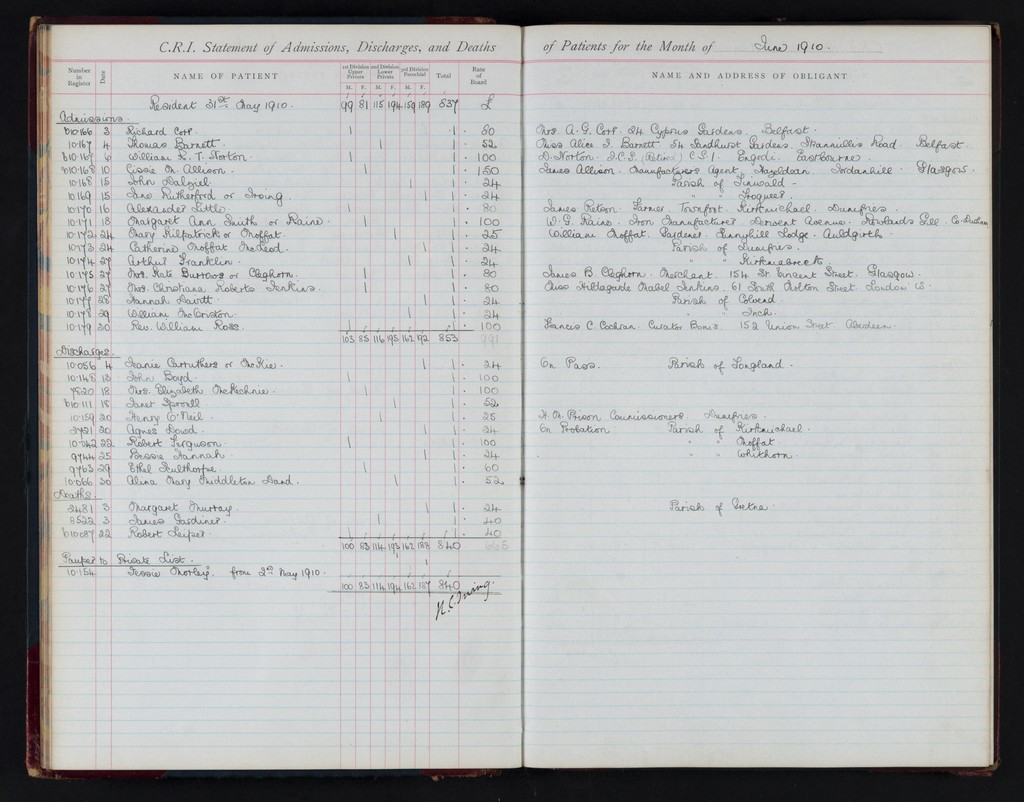 C.R.I. Statement of Admissions, Discharges, and Deaths of Patients for the Month of June 1910.
Number in Register Date NAME OF PATIENT 1st Division Upper Private M. F. 2nd Division Lower Private M. F. 3rd Division Parochial M. F. Total Rate of Board NAME AND ADDRESS OF OBLIGANT
Resident 31st May 1910. 99 81 115 194 159 189 837 £
Admissions.
b10·166 3 Richard Corp. 1 1 80 Mrs. A. G. Corp. 24 Cyprus Gardens. Belfast.
10·167 4 Thomas Barnett. 1 1 52 Miss Alice I. Barnett 54 Sandhurst Gardens. Stranmillis Road Belfast
b10·167 6 William E. T. Norton. 1 1 100 D. Norton. I.C.S. (Retired) C.S.I. Engedi. Eastbourne.
b10·168 10 Cissie M. Allison. 1 1 150 James Allison. Manufacturers Agent. Hazeldean. Jordanhill. Glasgow.
10·168 15 John Dalziel 1 1 24 Parish of Tinwald
10·169 15 Jane Rutherford or Irving. 1 1 24 " " Troqueer
10·170 16 Alexander Little. 1 1 80 James Paterson. Farmer. Townfoot. Kirkmichael. Dumfries.
10·171 18 Margaret Ann Smith or Raine. 1 1 100 W. G. Raine. Iron Manufacturer. Derwent Avenue. Rowlands Gill. Co. Durham
10·172 24 Mary Kilpatrick or Moffat. 1 1 25 William Moffat. Gardener. Sunnyhill Lodge. Auldgirth.
10·173 24 Catherine Moffat McLeod. 1 1 24 Parish of Dumfries.
10·174 27 Arthur Franklin. 1 1 24 " " Kirkmabreck.
10·175 27 Mrs. Kate Burrows or Cleghorn. 1 1 80 James B. Cleghorn. Merchant. 154 St. Vincent Street. Glasgow.
10·176 27 Mrs. Christiana Roberts Jenkins. 1 1 80 Miss Hildagarde Mabel Jenkins. 61 South Molton Street. London W.
10·177 28 Hannah Davitt 1 1 24 Parish of Colvend.
10·178 29 William McCriston. 1 1 24 " " Inch.
10·179 30 Rev. William Ross. 1 1 100 Francis C. Cochran. Curator Bonis. 152 Union Street Aberdeen.
103 85 116 195 162 192 853 991
Discharges.
10·056 4 Jeanie Carruthers or McKie. 1 1 24 On Pass. Parish of Tongland.
10·148 13 John Boyd. 1 1 100
7820 18 Mrs. Elizabeth McKechnie. 1 1 100
b10·111 18 Janet Sproull 1 1 52
10·159 20 Henry O'Neil. 1 1 25 H. M. Prison Commissioners. Dumfries.
3721 20 Agnes Dowd. 1 1 24 On Probation Parish of Kirkmichael.
10·042 22 Robert Ferguson. 1 1 100 " " Moffat
9744 25 Bessie Hannah. 1 1 24 " " Whithorn.
9763 29 Ethel Sculthorpe. 1 1 60
10·066 30 Alina Mary Middleton Dand. 1 1 52
Deaths.
2481 3 Margaret Murray. 1 1 24 Parish of Gretna.
8522 3 James Gardiner. 1 1 40
b10087 22 Robert Leiper. 1 1 40
100 83 114 193 162 188 840
Pauper to Private List. 1 1
10·154 Jessie Morley. from 2nd May 1910.
100 83 114 194 162 187 840
N. C. Irving.